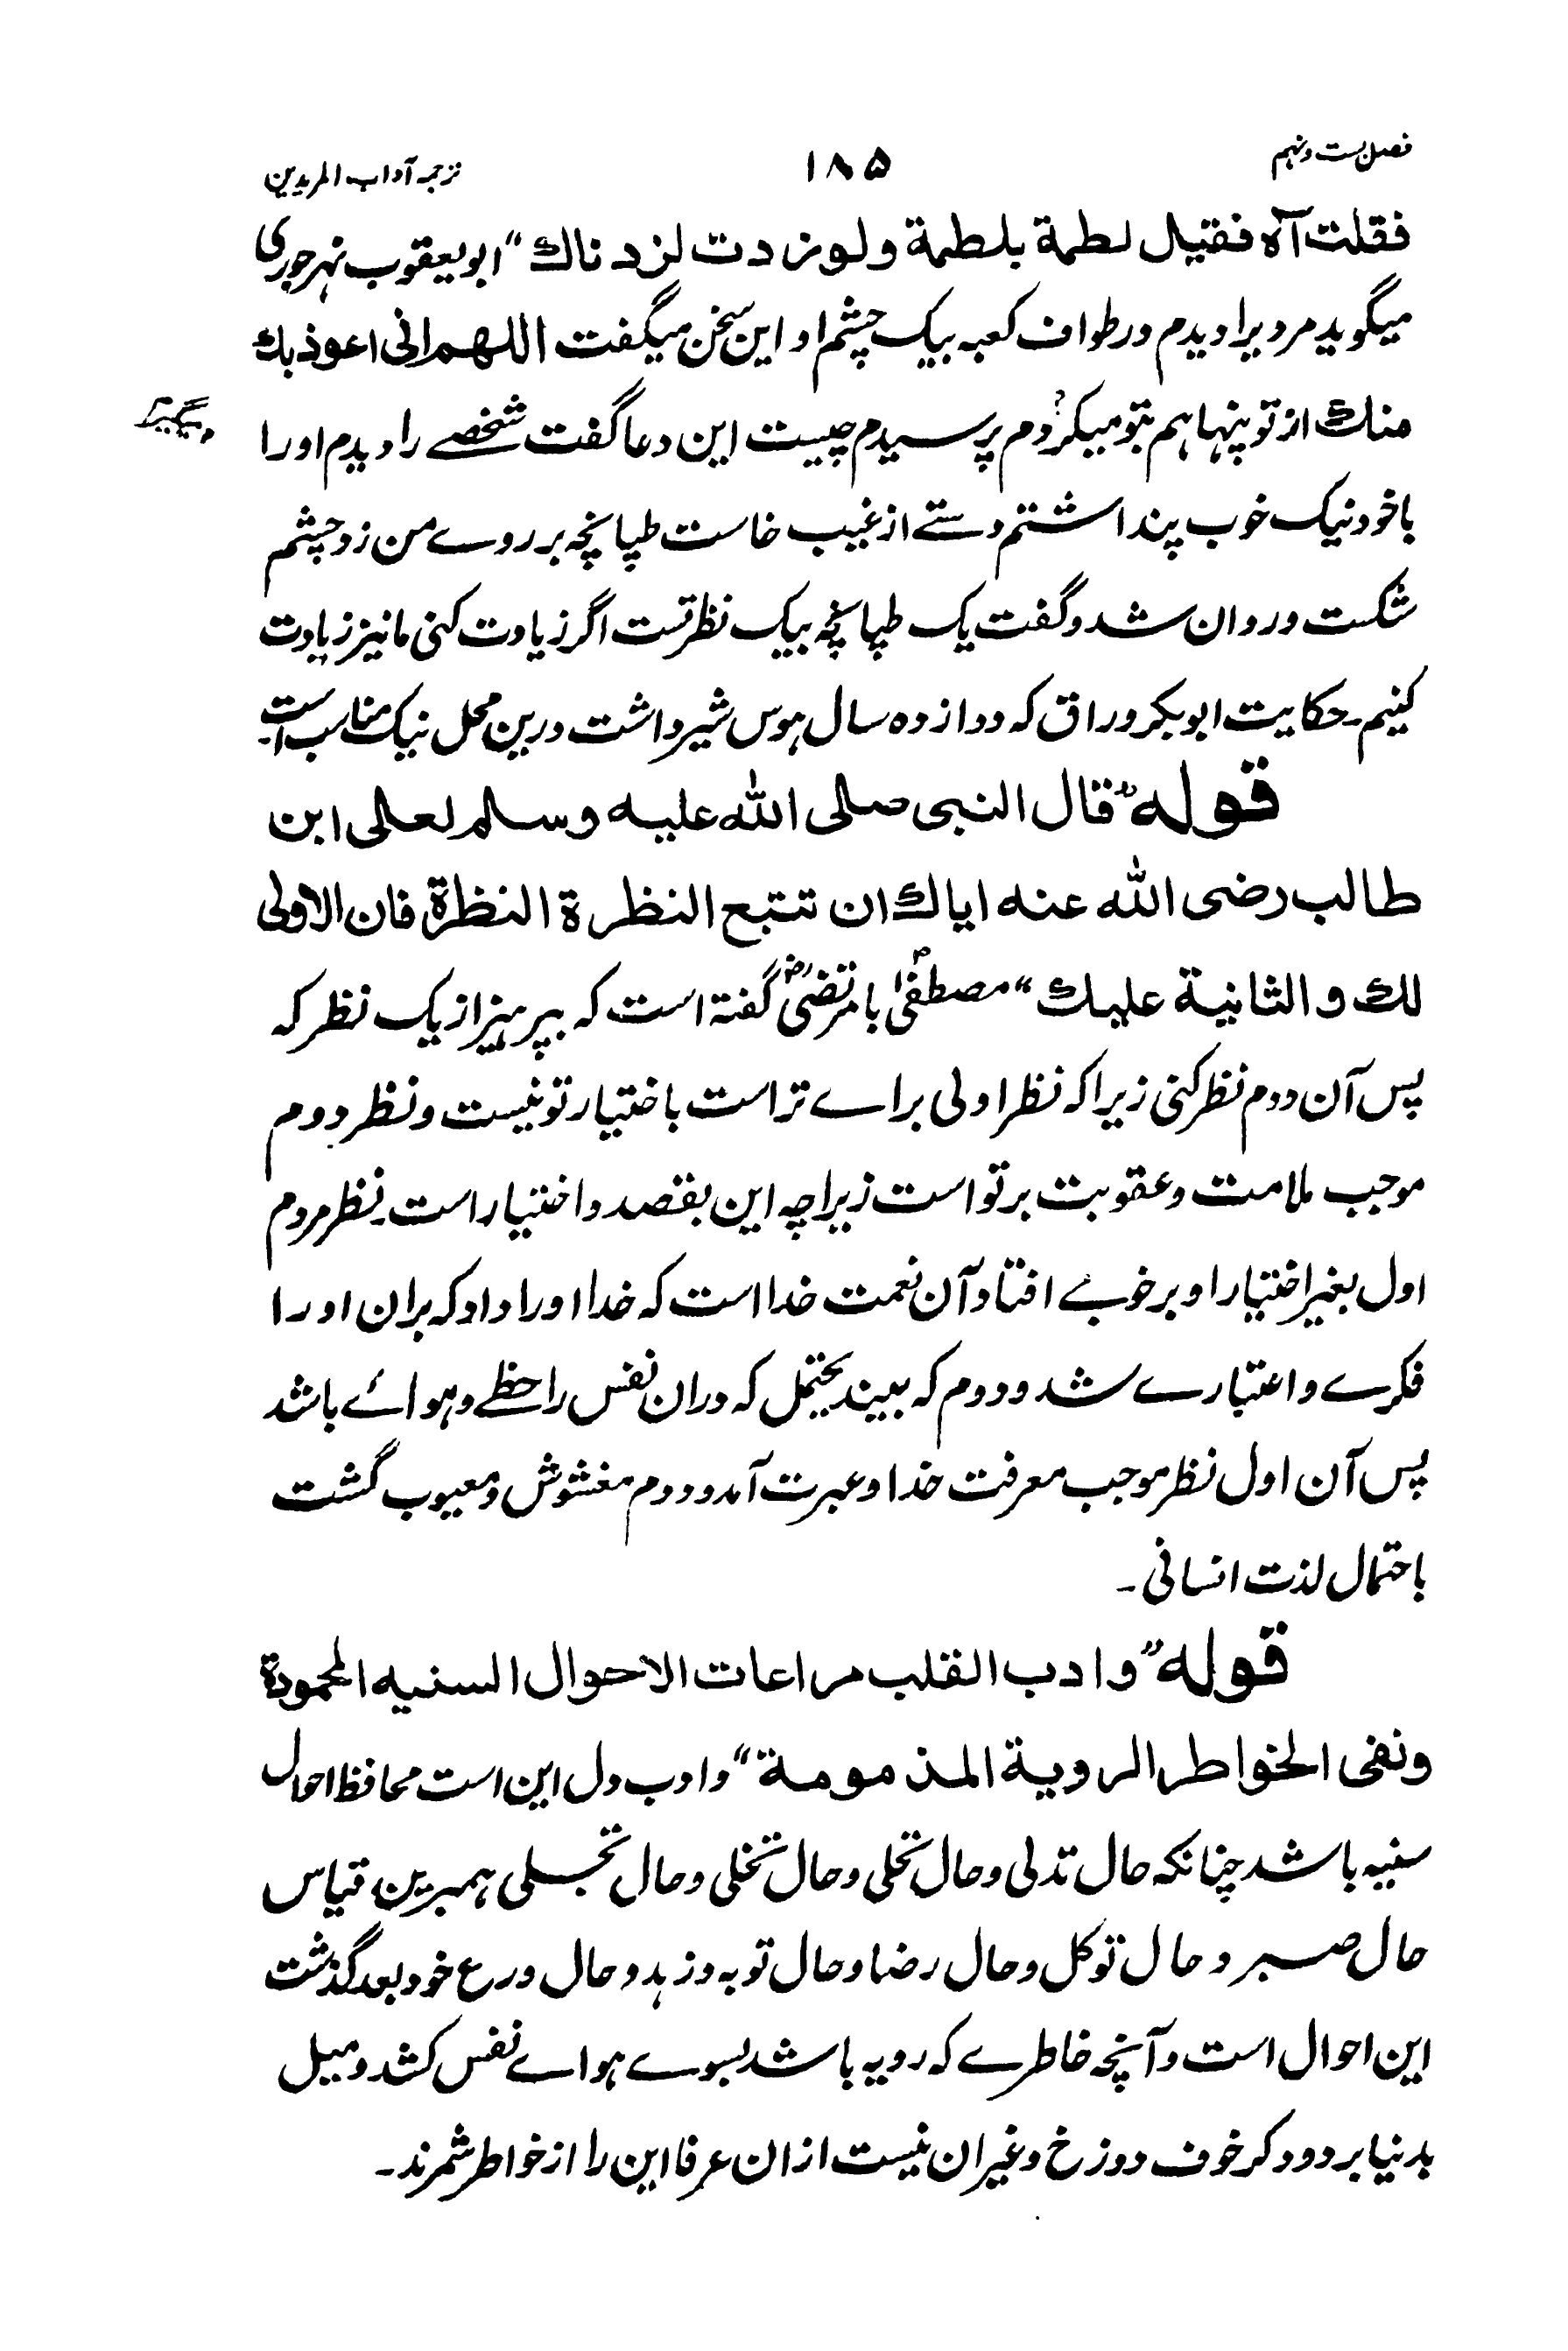 فصل بست و نهم
۱۸۵
ترجمہ آداب المریدین
فقلت آه فقیل لطمة بلطمة ولو زدت لزدناك“ ابو یعقوب نہرجوری
میگوید مردیرا دیدم در طواف کعبہ بیک چشم او این سخن میگفت اللهم انی اعوذ بك
منك از تو پنہا ہم بتو میکردم پرسیدم چیست این دعا گفت شخصے را دیدم او را
میگیرم
با خود نیک خوب پنداشتم دستے از غیب خاست طپانچہ بر روے من زد چشم
شکست و روان شد و گفت یک طپانچہ بیک نظر تست اگر زیادت کنی ما نیز زیادت
کنیم۔ حکایت ابوبکر وراق کہ دوازده سال ہوس شیر داشت درین محل نیک مناسب است
قوله ”قال النبی صلی الله علیه وسلم لعلی ابن
طالب رضی الله عنه ایاك ان تتبع النظرة النظرة فان الاولی
لك والثانیة علیك“ مصطفیٰؐ با مرتضیٰؓ گفتہ است کہ بپرہیز از یک نظر کہ
پس آن دوم نظر کنی زیرا کہ نظر اولی براے تراست باختیار تو نیست و نظر دوم
موجب ملامت و عقوبت بر تو است زیراچہ این بقصد و اختیار است۔ نظر مردم
اول بغیر اختیار او بر خوبے افتاد آن نعمت خدا است کہ خدا اورا داد کہ بران او را
فکرے و اعتبارے شد و دوم کہ ببیند یحتمل کہ دران نفس را حظے و ہوائے باشد
پس آن اول نظر موجب معرفت خدا و عبرت آمد و دوم مغشوش و معیوب گشت
باحتمال لذت انسانی۔
قوله ”وادب القلب مراعات الاحوال السنیه المحمودة
ونفی الخواطر الرویة المذمومة“ و ادب دل این است محافظ احوال
سنیہ باشد چنانکہ حال تدلی و حال تحلی و حال تخلی و حال تجلی ہمبرین قیاس
حال صبر و حال توکل و حال رضا و حال توبہ و زہد و حال ورع خود بعد گذشت
این احوال است و آنچہ خاطرے کہ رویہ باشد بسوے ہواے نفس کشد و میل
بدنیا برد و دکر خوف دوزخ و غیران نیست ازان عرفا این را از خواطر شمرند۔